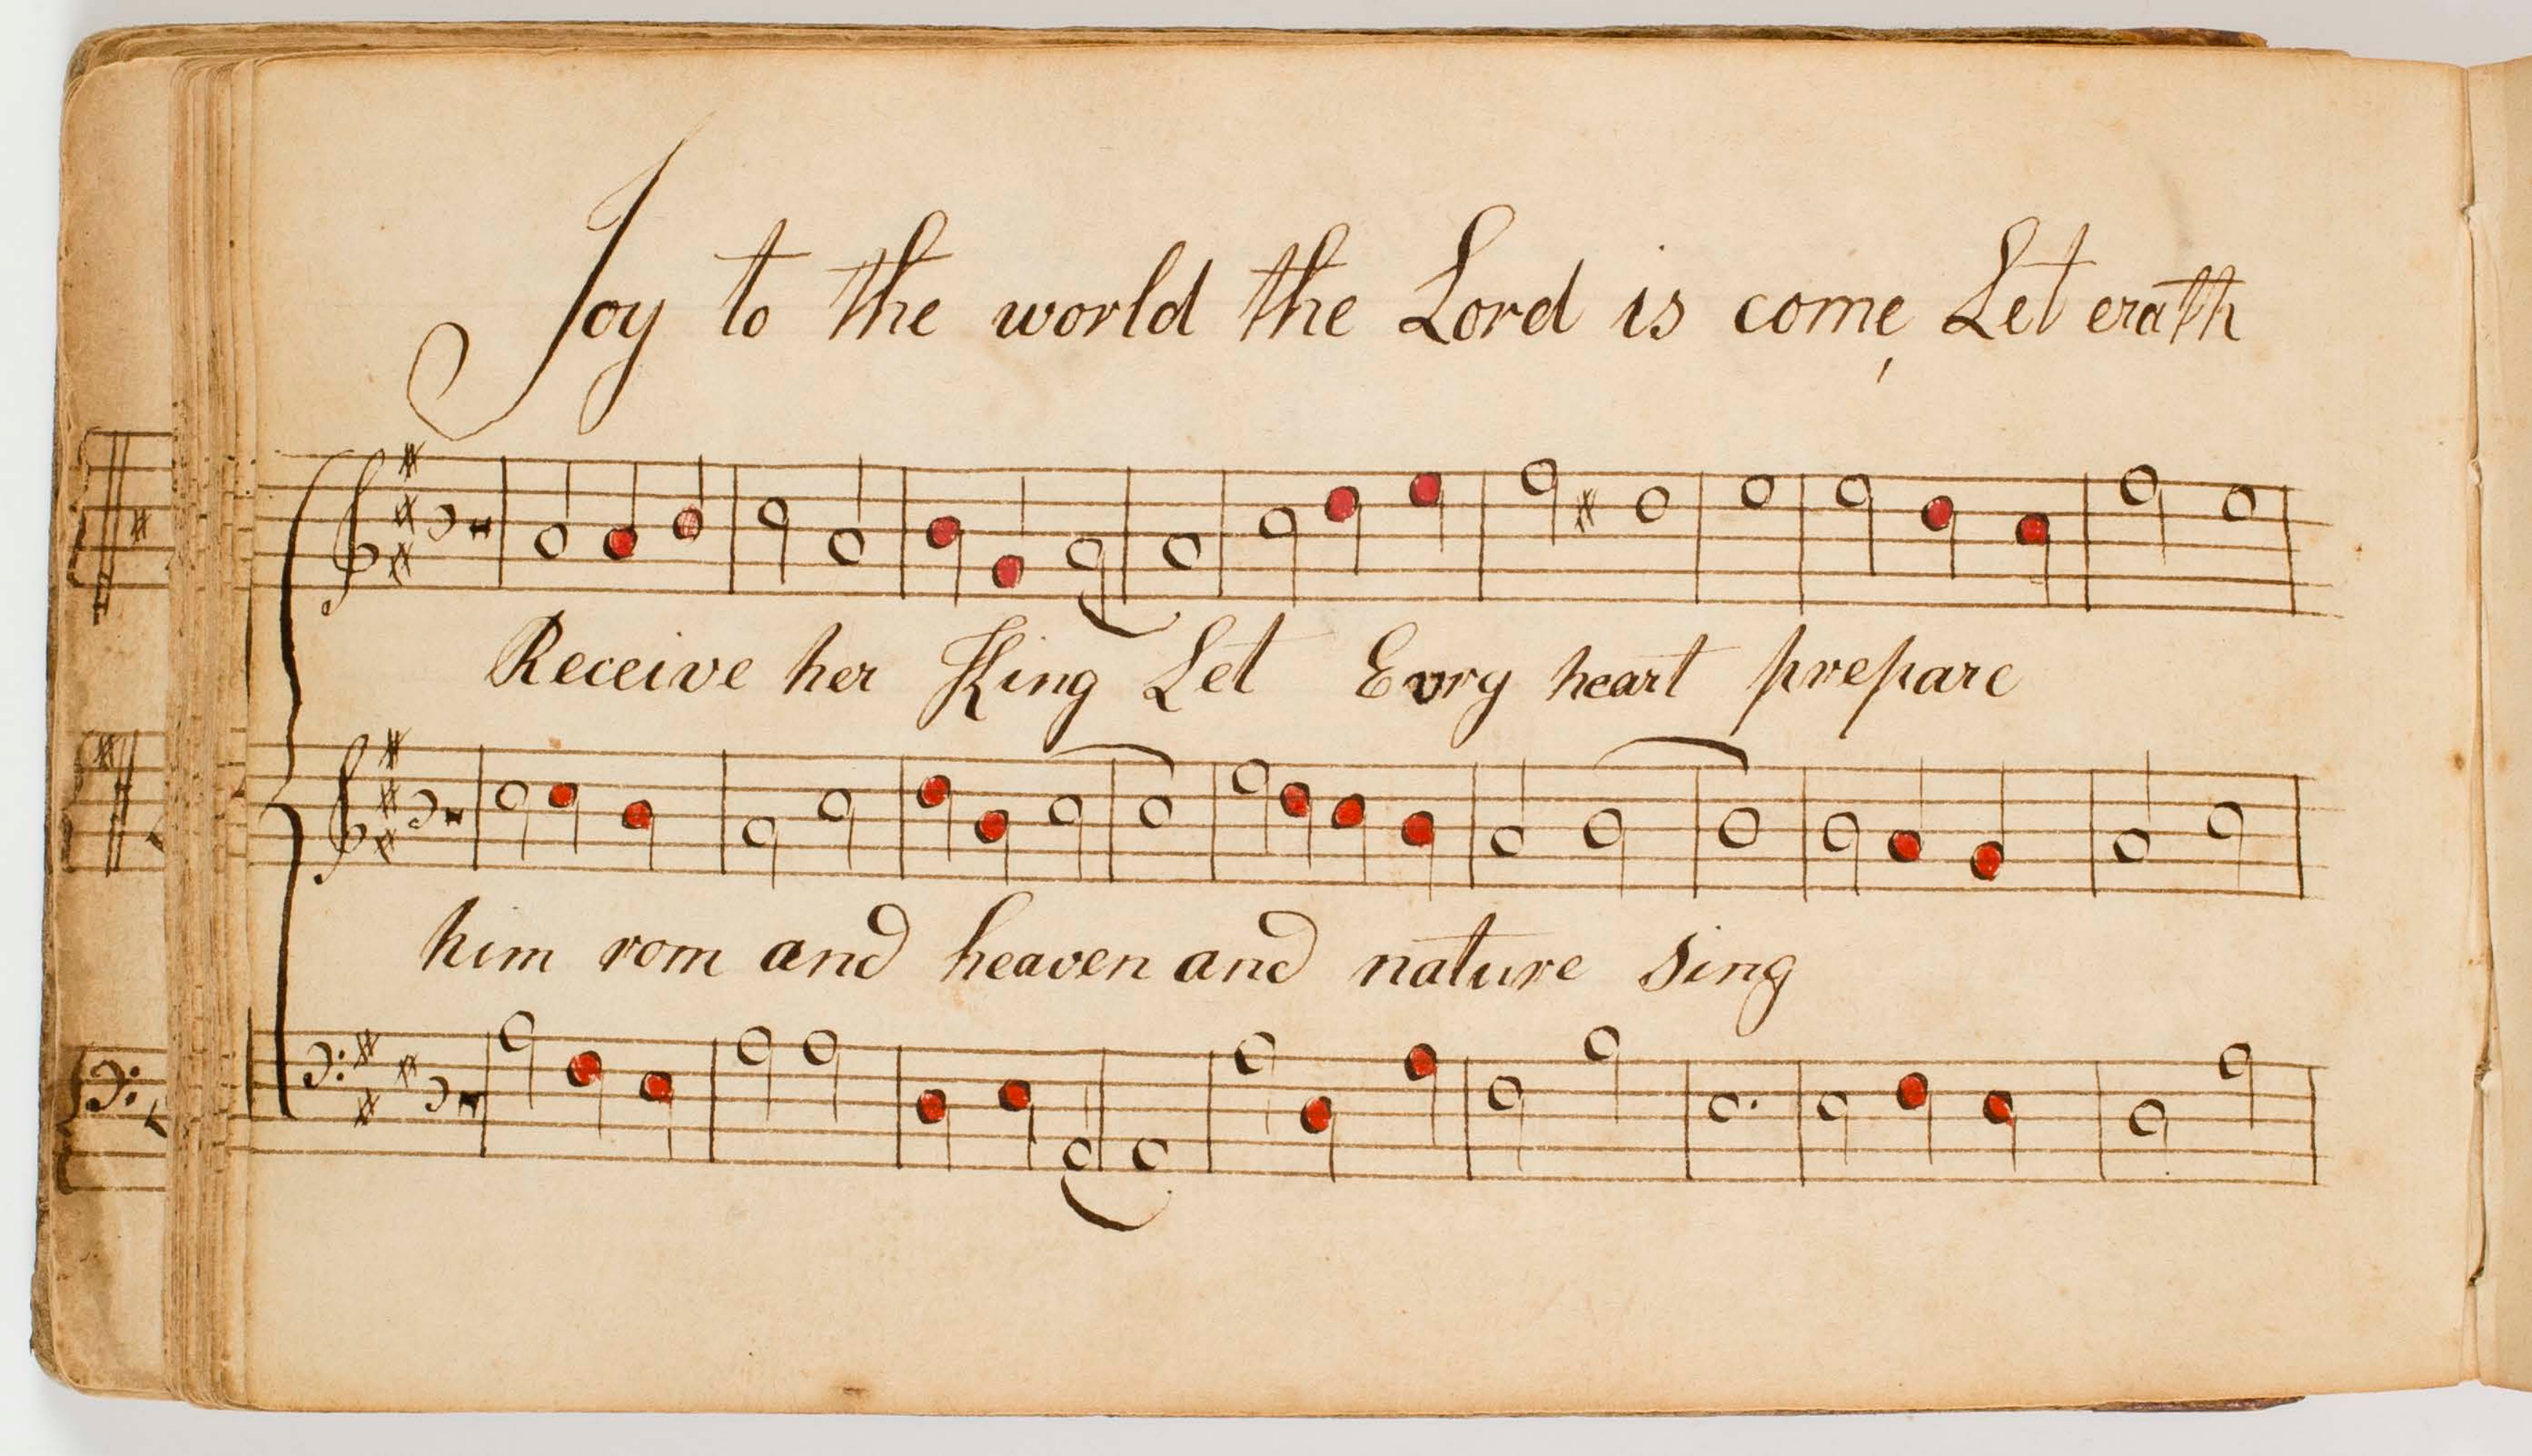 Joy to the world the Lord is come, Let erath
Receive her King Let Evry heart prepare
him rom and heaven and nature sing